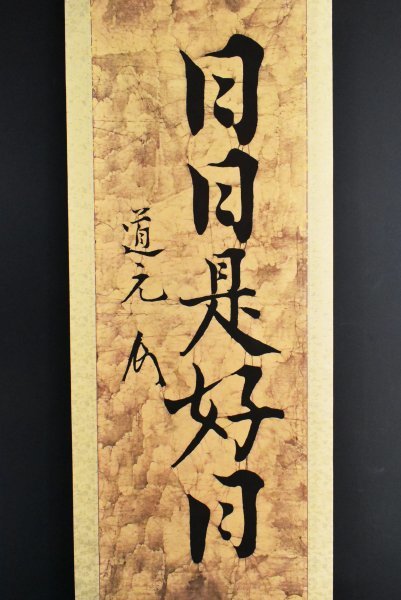 日日是好日
道元